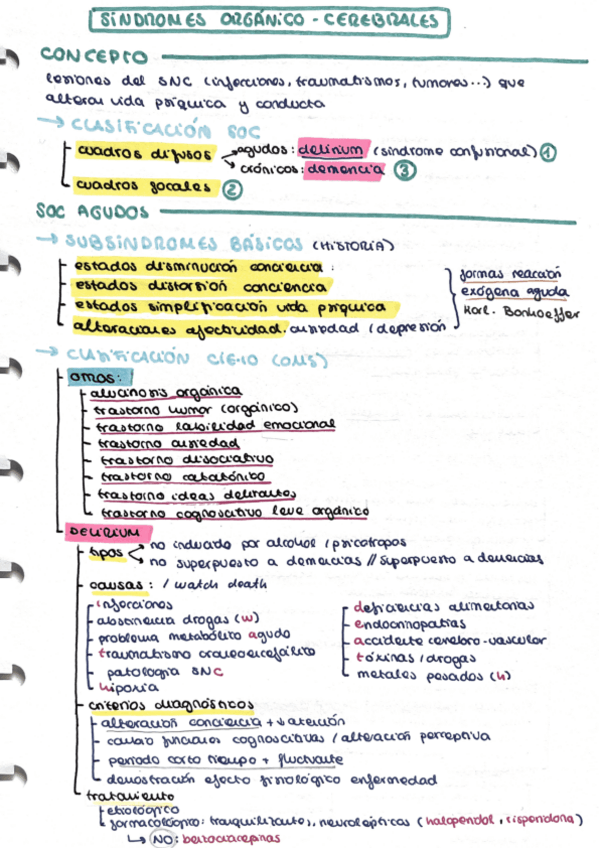 SÍNDROMES ORGÁNICO - CEREBRALES
CONCEPTO
lesiones del SNC (infecciones, traumatismos, tumores...) que
alteran vida psíquica y conducta
→ CLASIFICACIÓN SOC
cuadros difusos → agudos: delirium (síndrome confusional) ①
→ crónicos: demencia ③
cuadros focales ②
SOC AGUDOS
→ SUBSÍNDROMES BÁSICOS (HISTORIA)
estados disminución conciencia
estados distorsión conciencia
estados simplificación vida psíquica
alteraciones afectividad. ansiedad / depresión
formas reacción
exógena aguda
Karl. Bonhoeffer
→ CLASIFICACIÓN CIE-10 (OMS)
OTROS:
alucinosis orgánica
trastorno humor (orgánico)
trastorno labilidad emocional
trastorno ansiedad
trastorno disociativo
trastorno catatónico
trastorno ideas delirantes
trastorno cognoscitivo leve orgánico
DELIRIUM
tipos → no inducido por alcohol / psicotropos
→ no superpuesto a demencias // superpuesto a demencias
causas: I watch death
infecciones
abstinencia drogas (w)
problema metabólico agudo
traumatismo craneoencefálico
patología SNC
hipoxia
deficiencias alimentarias
endocrinopatías
accidente cerebro-vascular
tóxinas / drogas
metales pesados (h)
criterios diagnósticos
alteración conciencia + ↓ atención
cambio funciones cognoscitivas / alteración perceptiva
periodo corto tiempo + fluctuante
demostración efecto fisiológico enfermedad
tratamiento
etiológico
farmacológico: tranquilizantes, neurolépticos (haloperidol, risperidona)
↳ NO: benzodiacepinas